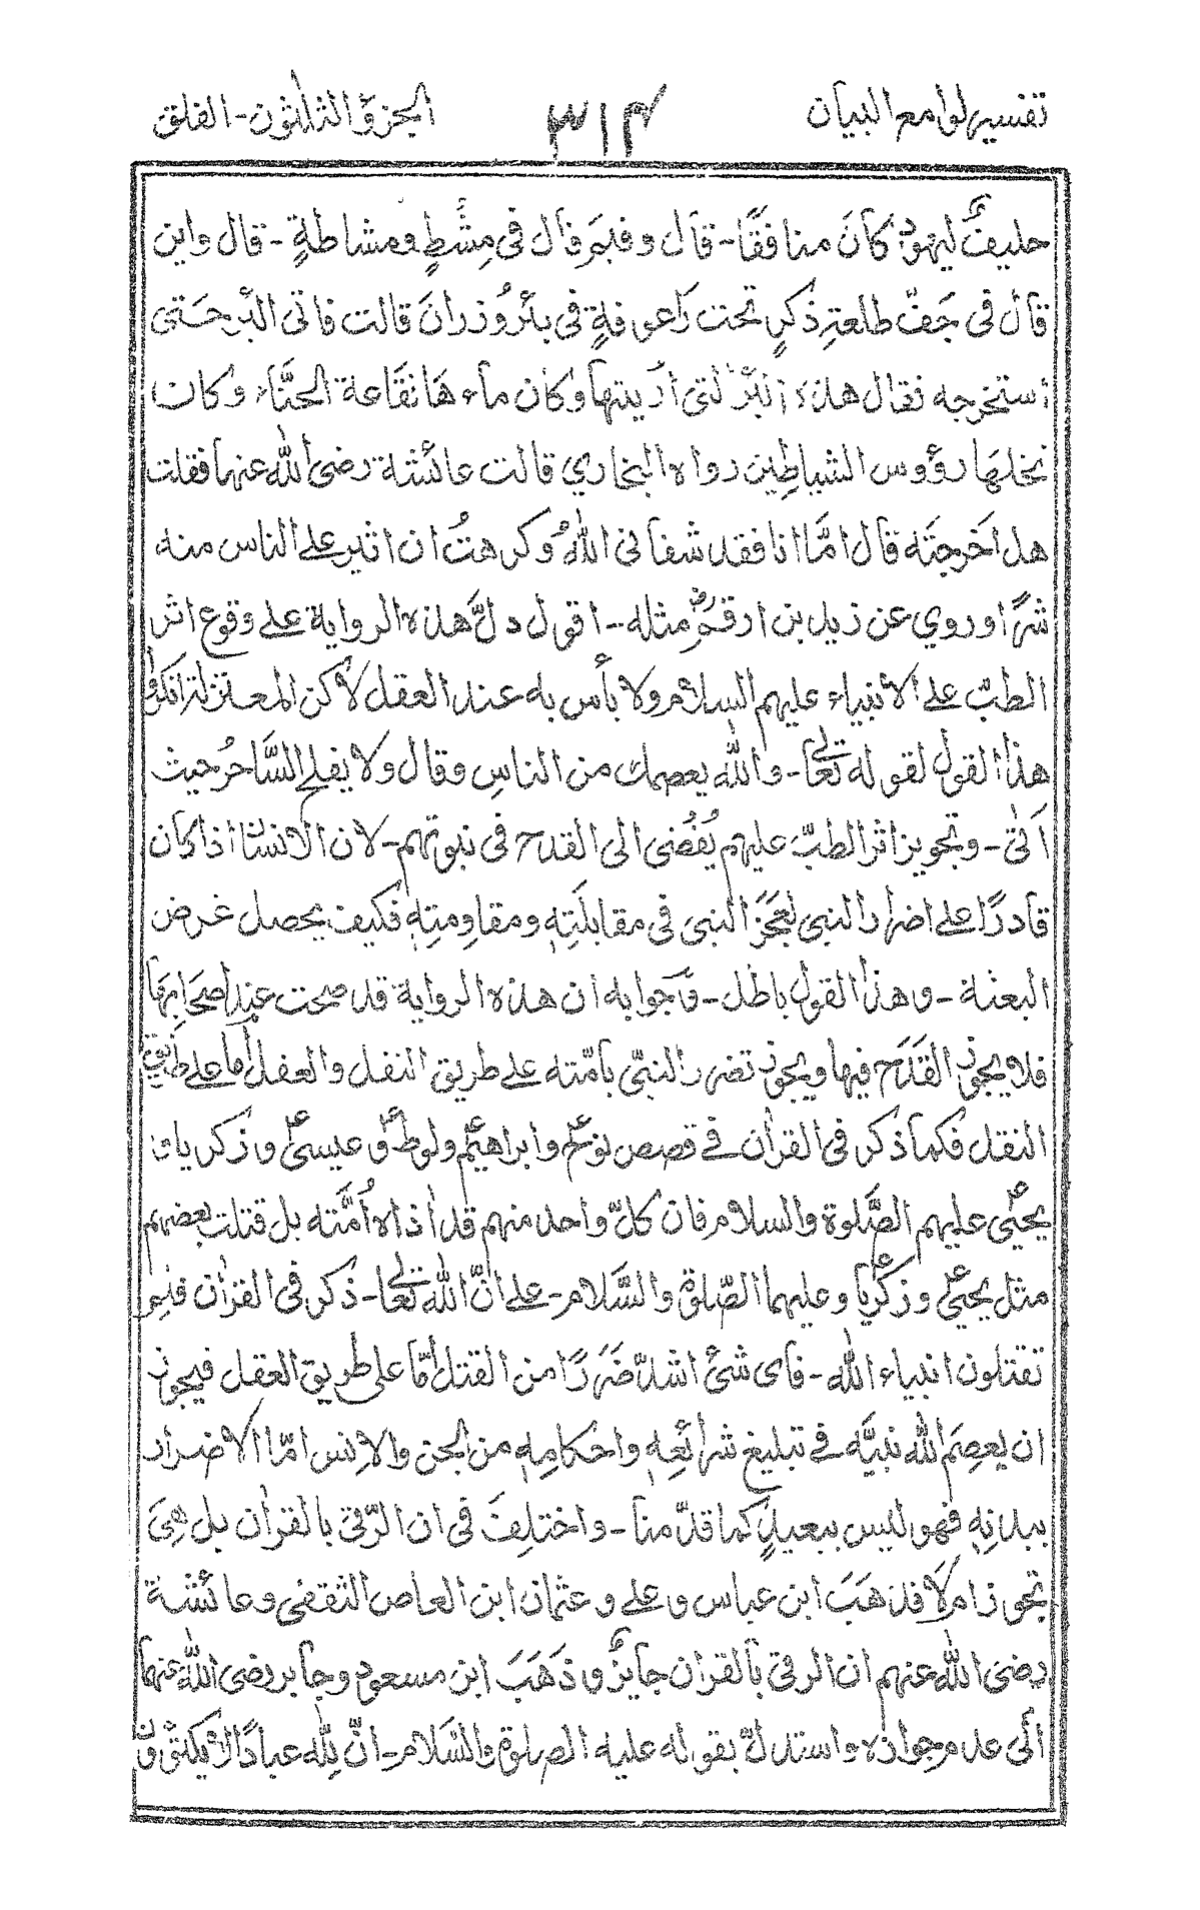 تفسير لوامع البيان ٣١٤ الجزؤ الثلاثون - الفلق
حليفٌ ليهود كانَ منافقًا - قال وفيمَ قال فى مِشْطٍ ومشاطةٍ - قال واين
قال فى جَفّ طلعةِ ذكرٍ تحت رَاعوفةٍ فى بئرُ وُذرانَ قالت فاتى البئر حتى
استخرجه فقال هذه البئرُ لتى اُريتها وكان ماءهَا نقَاعة الحنَّاء وكان
نخلهَا رؤوس الشياطِين رواه البخاري قالت عائشة رضى الله عنها فقلت
هل اَخرجتَه قال امَّا انا فقد شفانى اللهُ وكرهتُ ان اثير على الناس منه
شرًا وروي عن زيد بن ارقم مثله - اقول دلَّ هذه الرواية على وقوع اثر
الطبّ على الانبياء عليهم السلام ولا بأس به عند العقل لاكن المعتزلة انكروا
هذا القول لقوله تعالى - والله يعصمك من الناسِ وقال ولا يفلح السَّاحرُ حيث
اَتٰى - وتجويز اثر الطبّ عليهم يُفْضى الى القدح فى نبوتهم - لان الانسان اذا كان
قادرًا على اضرار النبى لعَجَزَ النبى فى مقابلَتِهٖ ومقاومتِهٖ فكيف يحصل غرض
البعثة - وهذا القول باطل - وَجوابه ان هذه الرواية قد صحت عند اصحَابِهَا
فلا يجوز القَدَح فيها ويجوز تضرر النبّى بامّته على طريق النقل والعقل اما على طريق
النقل فكما ذكر فى القراٰن فى قصص نوحؑ وابراهيمؑ ولوطؑ وعيسىؑ وذكريا و
يحيىؑ عليهم الصَّلوة والسلام فان كلّ واحد منهم قد اٰذاه اُمَّته بل قتلت بعضهم
مثل يحيىؑ وزكرياؑ وعليهما الصّلوة والسَّلام - على انّ الله تعالى - ذكر فى القراٰن فلِمَ
تقتلون انبياء الله - فاى شئ اشدّ ضَرَرًا من القتل امّا على طريق العقل فيجوز
ان يعصِمَ الله نبيَّه فى تبليغ شرائعِهٖ واحكامِهٖ من الجن والانس امّا الاضرار
ببدنِهٖ فهو ليس ببعيدٍ كما قدّمنا - واختلِفَ فى ان الرّقىَ بالقراٰن بل هِىَ
تجوز ام لا فذهَبَ ابن عباس وعلى وعثمان ابن العاص الثقفى وعائشة
رضى الله عنهم ان الرقى بالقراٰن جايزٌ وذَهَبَ ابن مسعود وجابر رضى الله عنهما
الى عدم جوازه واستدلّ بقوله عليه الصلوة والسَّلام - انّ لِلّٰه عبادًا لا يكتون